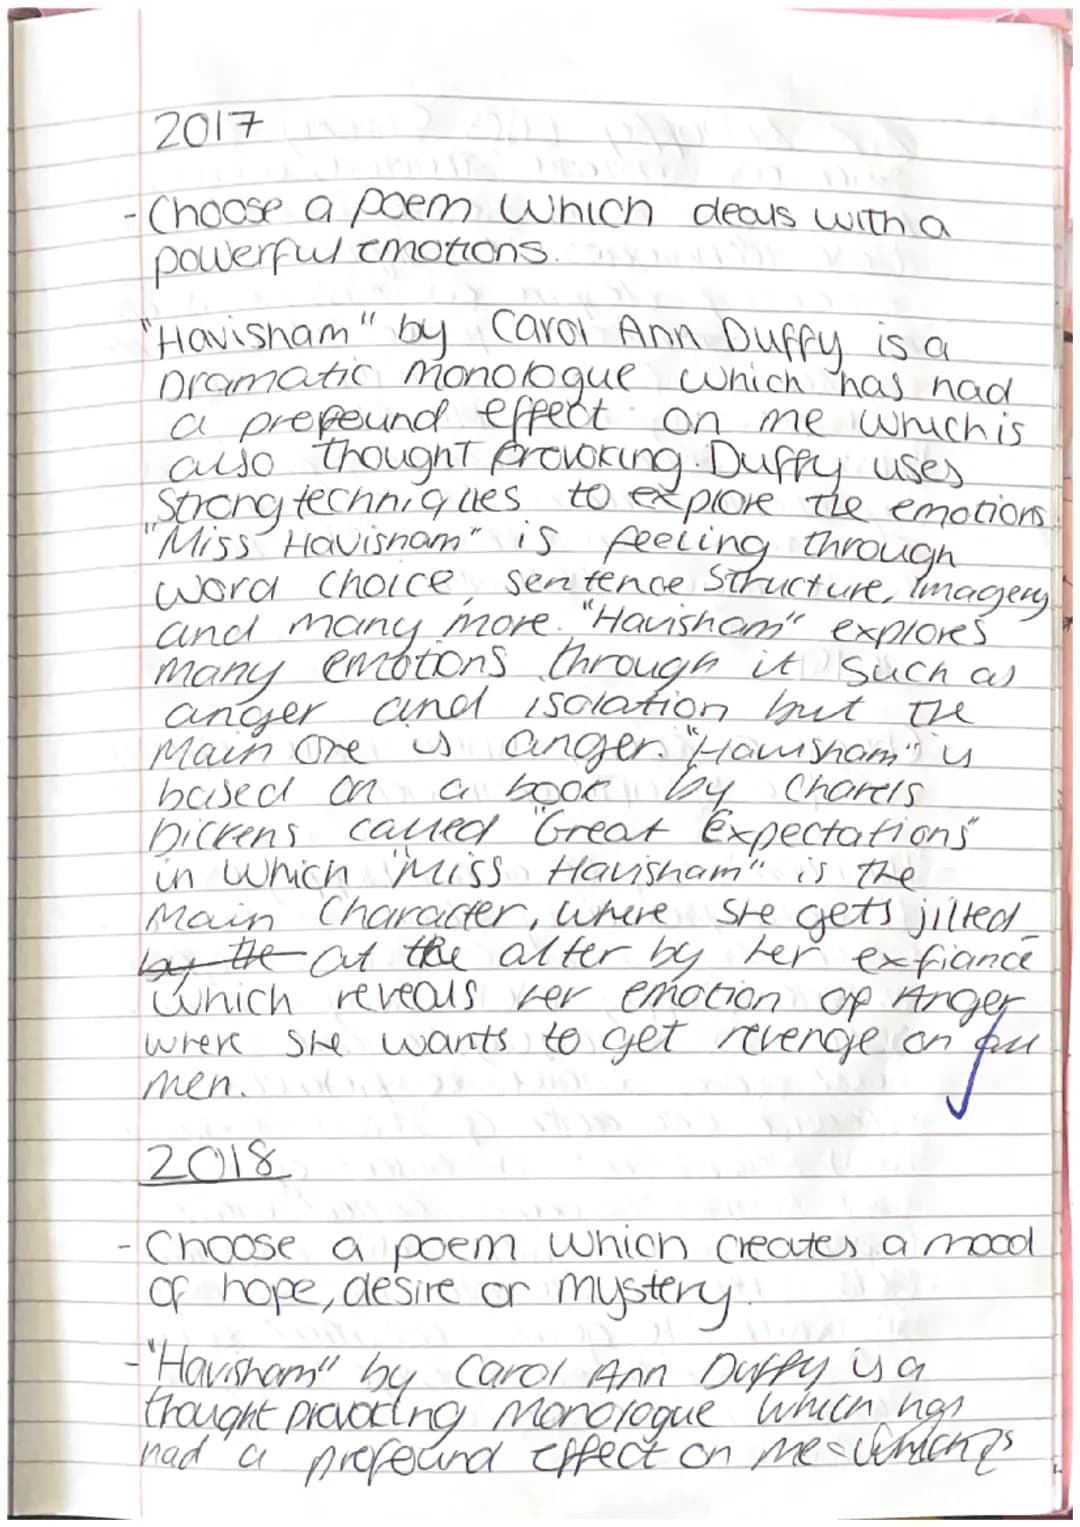 2017
- Choose a poem which deals with a
powerful emotions.
"Havisham" by Carol Ann Duffy is a
Dramatic monologue which has had
a profound effect on me which is
also thought provoking. Duffy uses
strong techniques to explore the emotions
"Miss Havisham" is feeling through
word choice, sentence structure, imagery
and many more. "Havisham" explores
many emotions through it such as
anger and isolation but the
main one is anger. "Havisham" is
based on a book by Charels
Dickens called "Great Expectations"
in which "Miss Havisham" is the
main character, where she gets jilted
by the at the alter by her exfiance
which reveals her emotion of Anger
were she wants to get revenge on all
men.
2018
- Choose a poem which creates a mood
of hope, desire or mystery.
- "Havisham" by Carol Ann Duffy is a
thought provoking monologue which has
had a profound effect on me which is